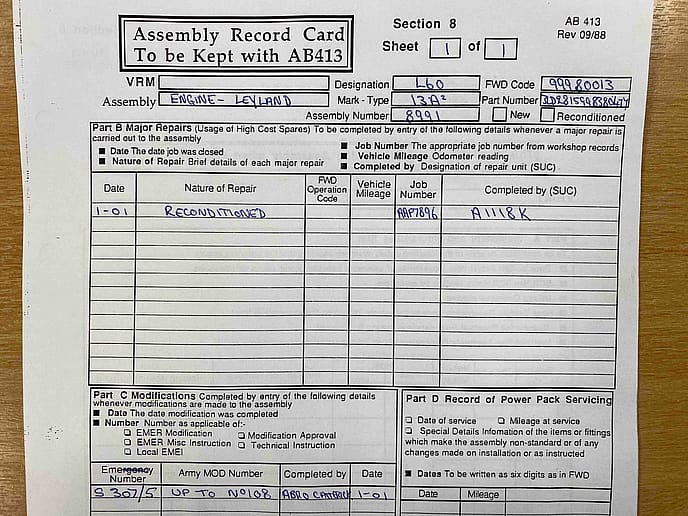 Assembly Record Card
To be Kept with AB413
Section 8
Sheet 1 of 1
AB 413
Rev 09/88
VRM
Designation L60
FWD Code 99980013
Assembly ENGINE - LEYLAND
Mark - Type 13A²
Part Number
Assembly Number 8991
New
Reconditioned
Part B Major Repairs (Usage of High Cost Spares) To be completed by entry of the following details whenever a major repair is
carried out to the assembly
Date The date job was closed
Nature of Repair Brief details of each major repair
Job Number The appropriate job number from workshop records
Vehicle Mileage Odometer reading
Completed by Designation of repair unit (SUC)
Date Nature of Repair FWD Operation Code Vehicle Mileage Job Number Completed by (SUC)
1-01 RECONDITIONED AAP7896 A1118K
Part C Modifications Completed by entry of the following details
whenever modifications are made to the assembly
Date The date modification was completed
Number Number as applicable of:-
EMER Modification Modification Approval
EMER Misc Instruction Technical Instruction
Local EMEI
Emergency Number Army MOD Number Completed by Date
S 307/5 UP TO Nº108 ABRO 1-01
Part D Record of Power Pack Servicing
Date of service Mileage at service
Special Details Infomation of the items or fittings
which make the assembly non-standard or of any
changes made on installation or as instructed
Dates To be written as six digits as in FWD
Date Mileage